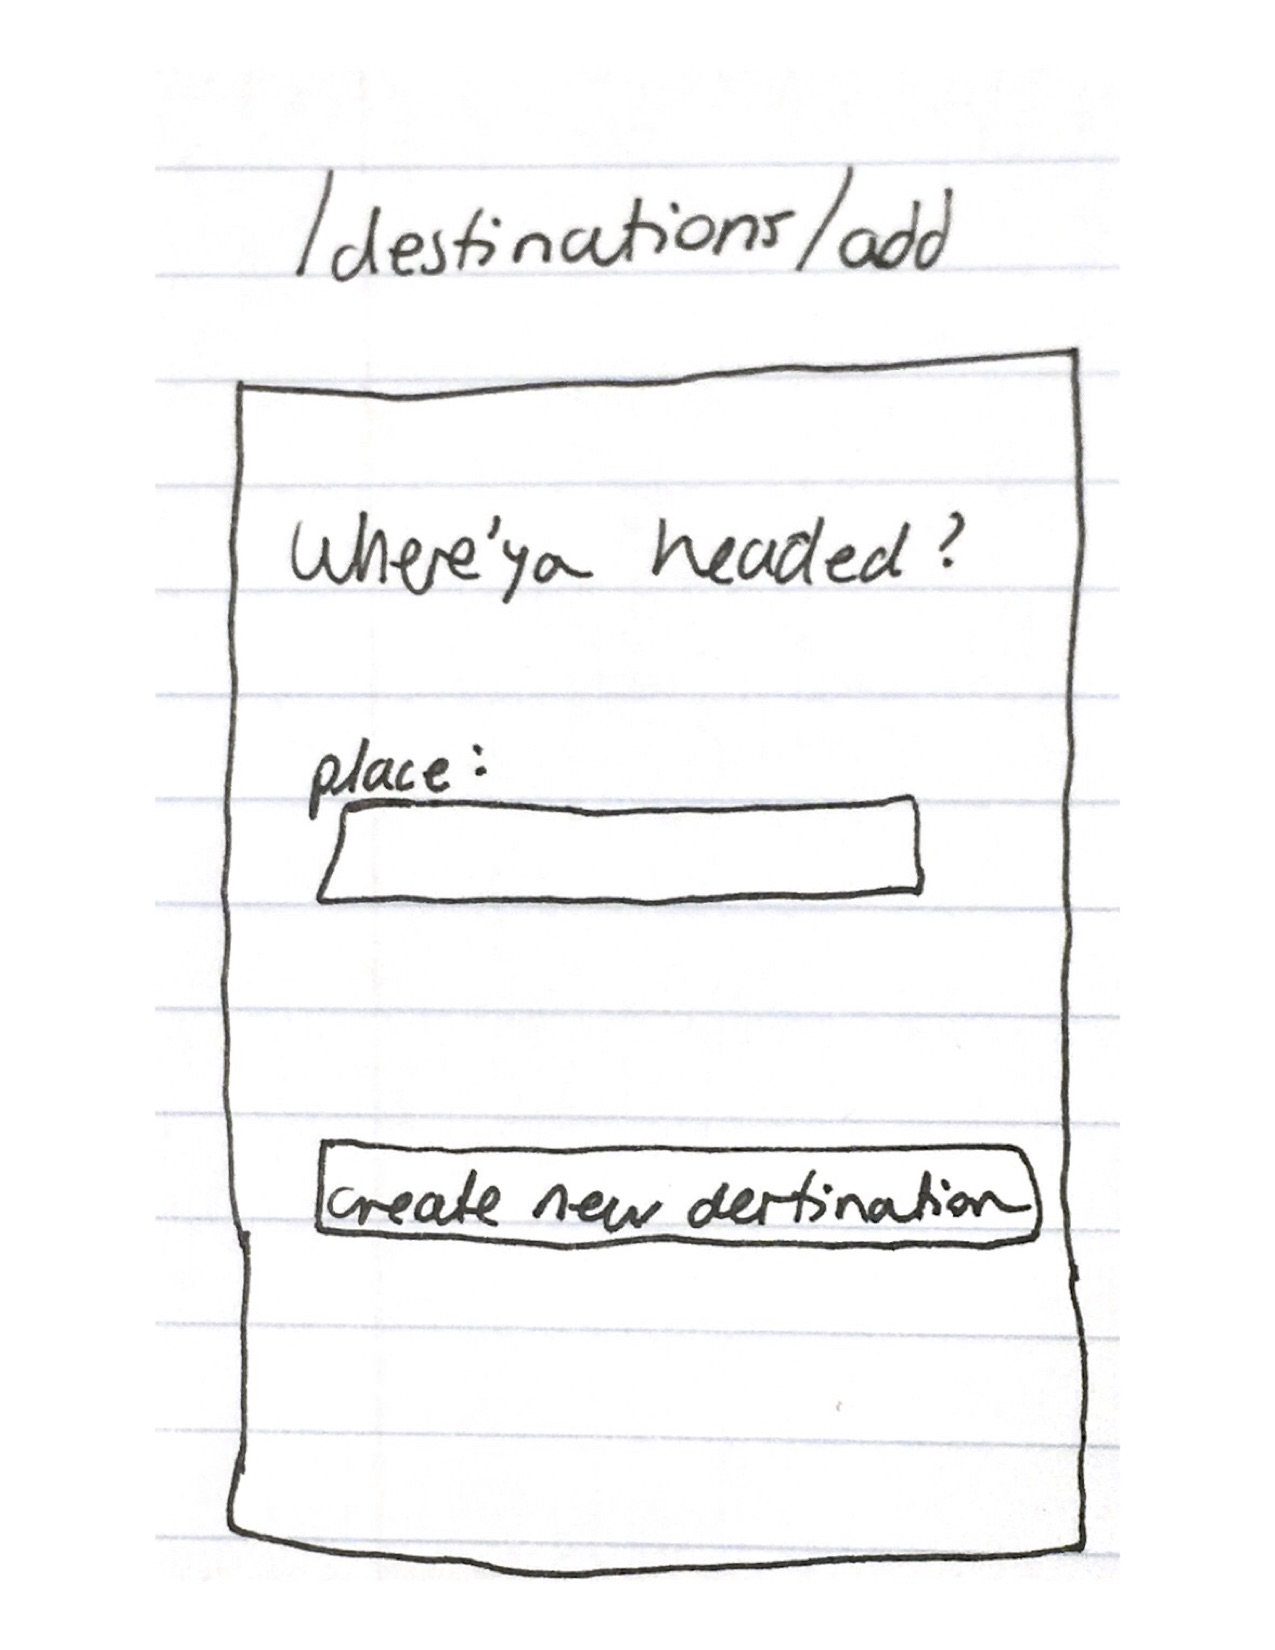 /destinations/add
Where'ya headed?
place:
create new destination